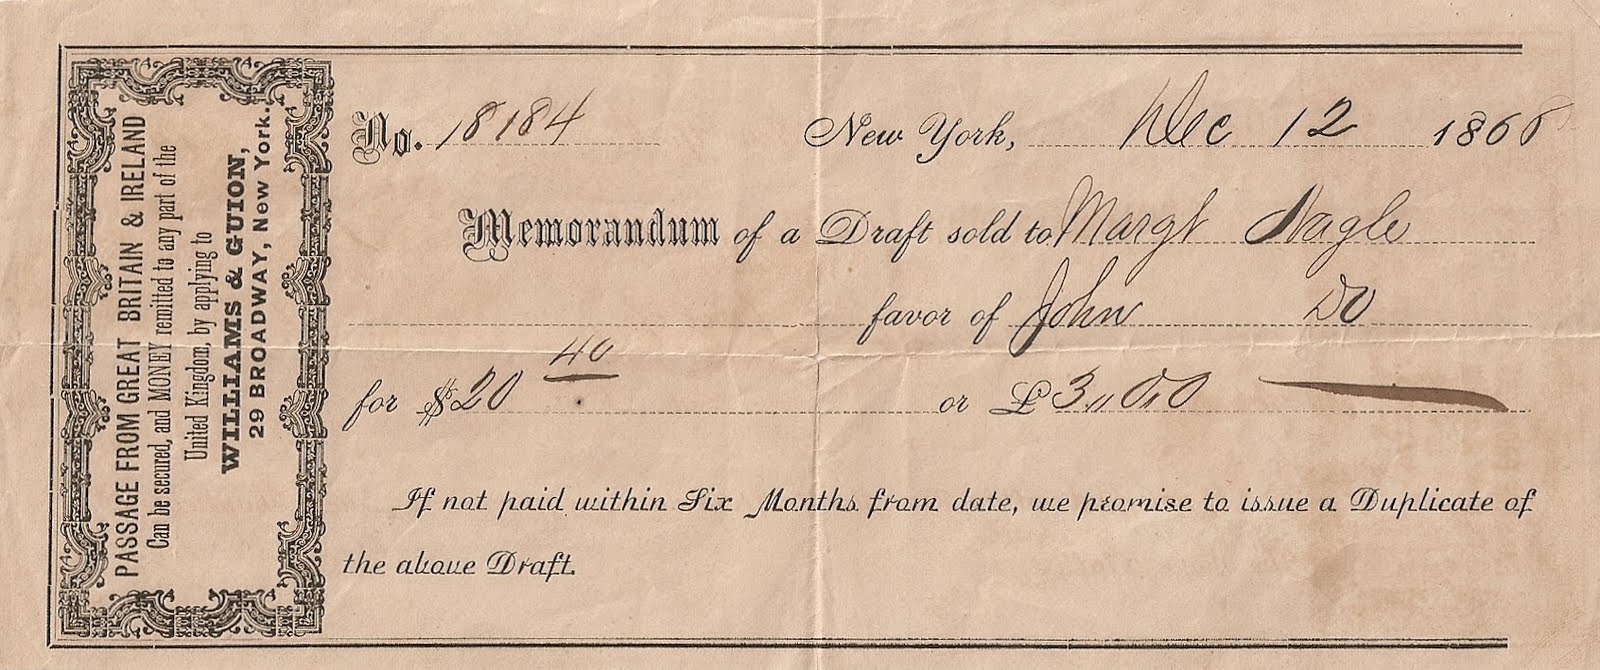 PASSAGE FROM GREAT BRITAIN & IRELAND
Can be secured, and MONEY remitted to any part of the
United Kingdom, by applying to
WILLIAMS & GUION,
29 BROADWAY, New York.
No. 18184 New York, Dec 12 1868
Memorandum of a Draft sold to Margt Nagle
favor of John Do
for $20 40 or £3,,0,0
If not paid within Six Months from date, we promise to issue a Duplicate of
the above Draft.